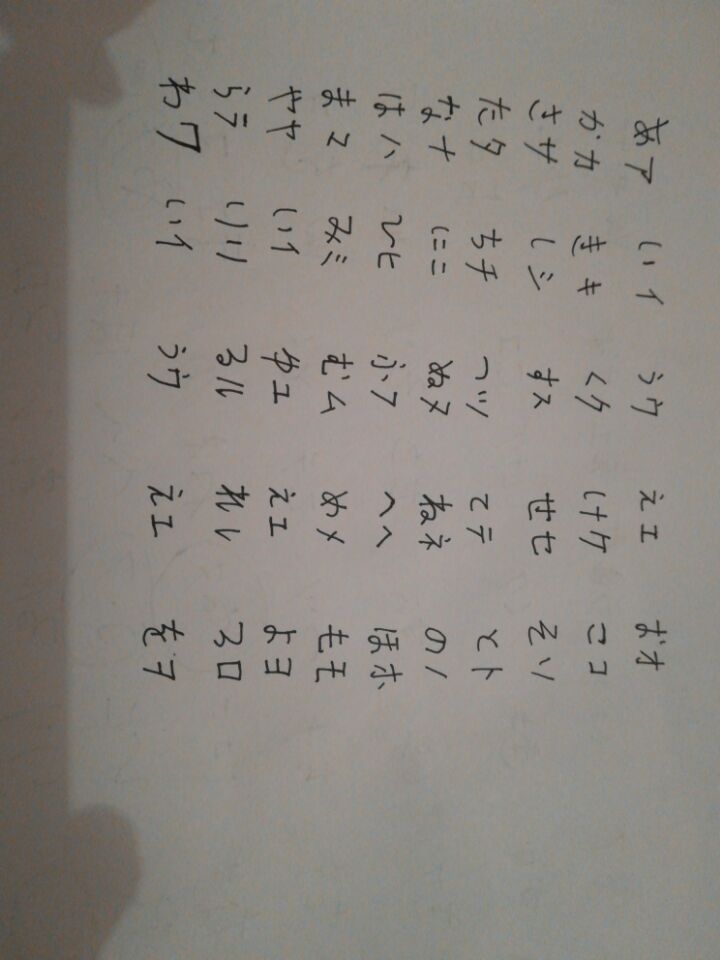 あア いイ うウ えエ おオ
かカ きキ くク けケ こコ
さサ しシ すス せセ そソ
たタ ちチ つツ てテ とト
なナ にニ ぬヌ ねネ のノ
はハ ひヒ ふフ へヘ ほホ
まマ みミ むム めメ もモ
やヤ いイ ゆユ えエ よヨ
らラ りリ るル れレ ろロ
わワ いイ うウ えエ をヲ